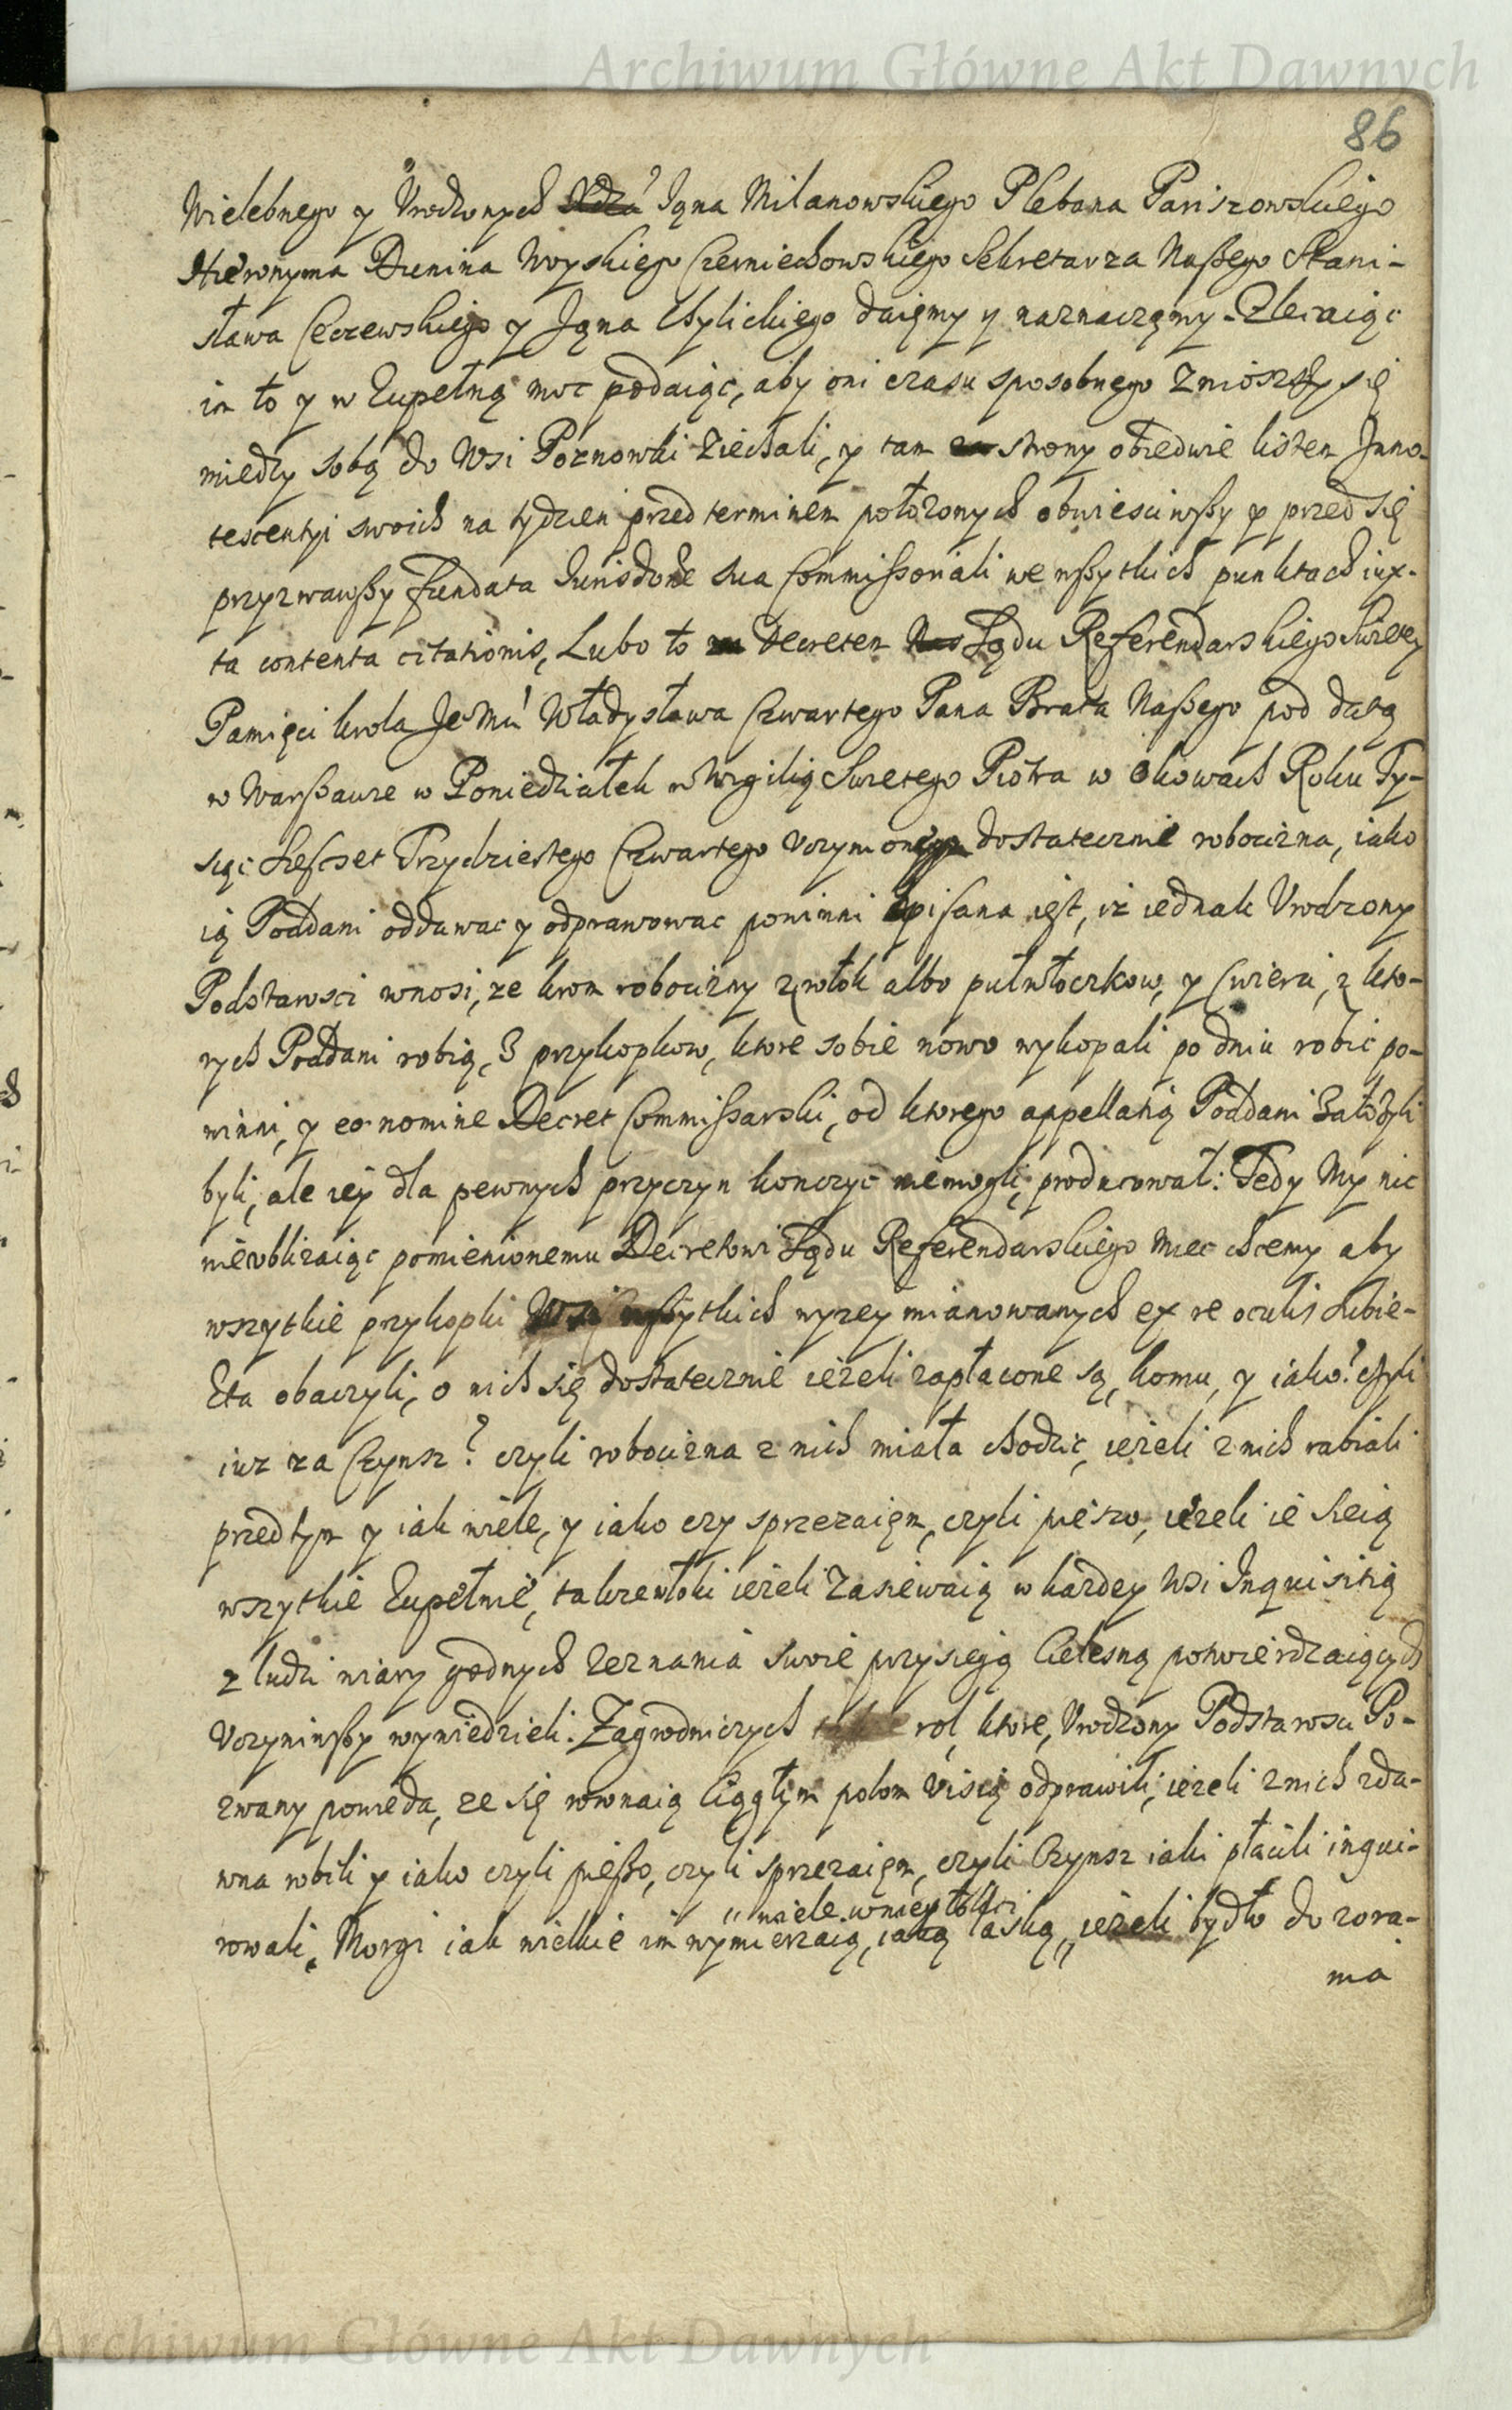 Archiwum Główne Akt Dawnych
86
Wielebnego y Vrodzonych Jana Milanowskiego Plebana Pariszowskiego
Hieronyma Dunina Woyskiego Czerniechowskiego Sekretarza Naszego Stani-
sława Ceczewskiego y Jana daięmy y naznaczęmy. Zlecaiąc
im to y w Zupełną moc podaiąc, aby oni czasu sposobnego zniosszy się
miedzy sobą do Wsi Poznowki ziechali, y tam strony obiedwie listem Inno-
tescentyi swoich na tydzien przed terminem położonych obwiesciwszy y przed się
przyzwawszy fundata Iurisdone sua Commissoriali we wszytkich punktach iux-
ta contenta citationis, Lubo to Decretem Sądu Referendarskiego Swietey
Pamięci krola JeoMci Władysława Czwartego Pana Brata Naszego pod datą
w Warszawie w Poniedziałek w Wigilią Swietego Piotra w Okowach Roku Ty-
siąc Szescset Trzydziestego Czwartego Vczynionym dostatecznie robocizna, iako
ią Poddani oddawac y odprawowac powinni opisana iest, iz iednak Vrodzony
Podstarosci wnosi, ze krom robocizny z włok albo pułwłoczkow, y Cwierci, z kto-
rych Poddani robią, z przykopkow, ktore sobie nowo wykopali po dniu robic po-
winni, y eo nomine Decret Commissarski, od ktorego appellatią Poddani założyli
byli, ale iey dla pewnych przyczyn konczyc niemogli, producował: Tedy My nic
nieubliżaiąc pomienionemu Decretowi Sądu Referendarskiego miec chcemy aby
wszytkie przykopki Wsi wszytkich wyzey mianowanych ex re oculis subie-
kta obaczyli, o nich się dostatecznie ieżeli zapłacone są, komu, y iako? czyli
iuz za Czynsz? czyli robocizna z nich miała chodzic, ieżeli z nich rabiali
przed tym y iak wiele, y iako czy sprzezaięm, czyli pieszo, ieżeli ie sieią
wszytkie Zupełnie, takze włoki ieżeli zasiewaią w każdey Wsi Inquisitią
z ludzi wiary godnych zeznania swoie przysięgą Cielesną potwierdzaiących
Vczyniwszy wywiedzieli. Zagrodniczych rol, ktore, Vrodzony Podstarosci Po-
zwany powieda, ze się rownaią Ciągłym polom Visią odprawili, ieżeli z nich zda-
wna robili y iako czyli pieszo, czyli sprzezaięm, czyli Czynsz iaki płacili inqui-
wiele w niey łokci
rowali, Morgi iak wielkie im wymierzaią, iaką laską, ieżeli bydło do zora-
nia
Archiwum Główne Akt Dawnych